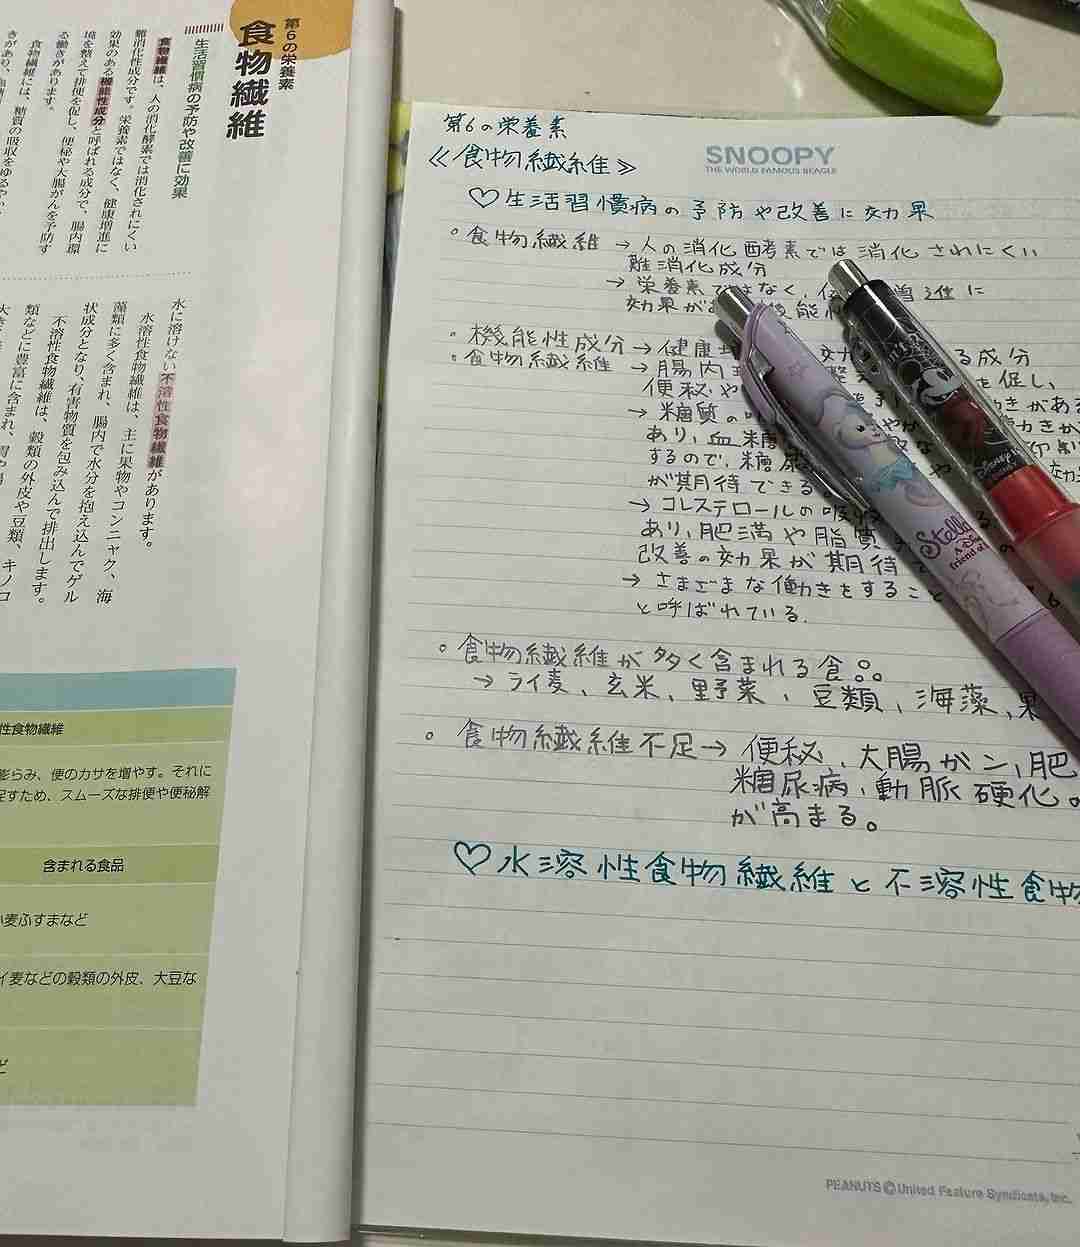 第6の栄養素
食物繊維
生活習慣病の予防や改善に効果
食物繊維は、人の消化酵素では消化されにくい
難消化性成分です。栄養素ではなく、健康増進に
効果のある機能性成分と呼ばれる成分で、腸内環
境を整えて排便を促し、便秘や大腸がんを予防す
る働きがあります。
食物繊維には、糖質の吸収をゆるやか
きがあり、血糖
水に溶けない不溶性食物繊維があります。
水溶性食物繊維は、主に果物やコンニャク、海
藻類に多く含まれ、腸内で水分を抱え込んでゲル
状成分となり、有害物質を包み込んで排出します。
不溶性食物繊維は、穀類の外皮や豆類、キノコ
類などに豊富に含まれ、胃や腸
性食物繊維
膨らみ、便のカサを増やす。それに
促すため、スムーズな排便や便秘解
含まれる食品
小麦ふすまなど
イ麦などの穀類の外皮、大豆な
ど
第6の栄養素
SNOOPY
THE WORLD FAMOUS BEAGLE
≪食物繊維≫
♡生活習慣病の予防や改善に効果
◦食物繊維→人の消化酵素では消化されにくい
難消化成分
→栄養素ではなく、増進に
効果が機能性
◦機能性成分→健康 効 る成分
◦食物繊維→腸内 整え を促し、
便秘や きがある
→糖質の やか 働きが
あり、血糖 な
するので、糖尿 や
が期待できる。
→コレステロールの吸
あり、肥満や脂質
改善の効果が期待
→さまざまな働きをすること
と呼ばれている.
◦食物繊維が多く含まれる食。。
→ライ麦、玄米、野菜、豆類、海藻、果
◦食物繊維不足→便秘、大腸がン、肥
糖尿病、動脈硬化の
が高まる。
♡水溶性食物繊維と不溶性食物
Stella
A Disney
friend of
Disney
PEANUTS © United Feature Syndicate, Inc.